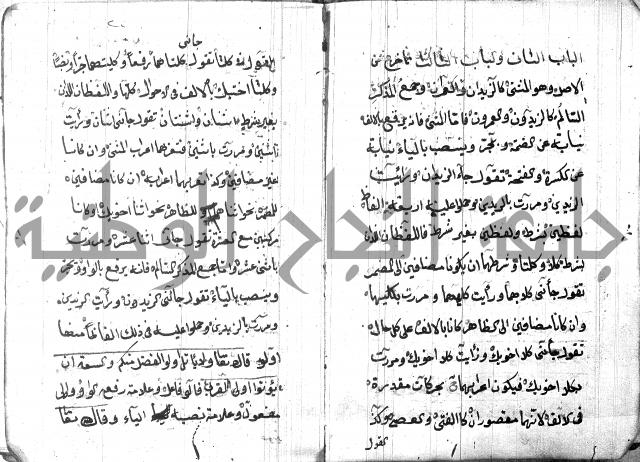 الباب الثاني والباب الثالث مما خرج عن
الاصل وهو المثنى كالزيدان والعمران وجمع المذكر
السالم كالزيدون والعمرون فاما المثنى فانه يرفع بالالف
نيابة عن الضمة ويجر وينصب بالياء نيابة
عن الكسرة والفتحة تقول جاء الزيدان ورأيت
الزيدين ومررت بالزيدين وحملوا عليه اربعة الفاظ
لفظين بشرط ولفظين بغير شرط فاللفظان اللذان
بشرط كلا وكلتا وشرطهما ان يكونا مضافين الى الضمير
تقول جاءني كلاهما ورأيت كليهما ومررت بكليهما
وان كانا مضافين الى الظاهر كانا بالالف على كل حال
تقول جاءني كلا اخويك ورأيت كلا اخويك ومررت
بكلا اخويك فيكون اعرابهما بحركات مقدرة
في الالف لانهما مقصوران كالفتى والعصى وكذا
تقول
جاءني
كلتا تقول كلتاهما رفعا وكلتيهما جرا ونصبا
وكلتا اختيك بالالف في الاحوال كلها واللفظان اللذان
بغير شرط اثنان واثنتان تقول جاءني اثنان ورأيت
اثنين ومررت باثنين فتعربهما اعراب المثنى وان كانا
غير مضافين وكذا تعربهما اعرابه ان كانا مضافين
للضمير نحو اثناهم او للظاهر نحو اثنا اخويك او كانا
مركبين مع العشرة تقول جاءني اثنا عشر ومررت
باثني عشر واما جمع المذكر السالم فانه يرفع بالواو ويجر
وينصب بالياء تقول جاءني الزيدون ورأيت الزيدين
ومررت بالزيدين وحملوا عليه في ذلك الفاظا منها
اولو قال تعالى ولا يأتل اولو الفضل منكم والسعة ان
يؤتوا اولى القربى فاولو فاعل وعلامة رفعه الواو واولى
مفعول وعلامة نصبه الياء وقال تعالى
جامعة النجاح الوطنية